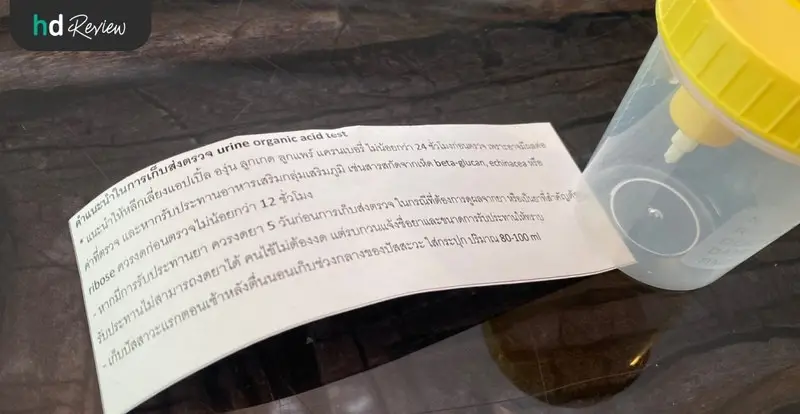 hd Review
คำแนะนำในการเก็บส่งตรวจ urine organic acid test
* แนะนำให้หลีกเลี่ยงแอปเปิ้ล องุ่น ลูกเกด ลูกแพร์ แครนเบอรี่ ไม่น้อยกว่า 24 ชั่วโมงก่อนตรวจ เพราะอาจมีผลต่อ
ค่าที่ตรวจ และหากรับประทานอาหารเสริมกลุ่มเสริมภูมิ เช่นสารสกัดจากเห็ด beta-glucan, echinacea หรือ
ribose ควรงดก่อนตรวจไม่น้อยกว่า 12 ชั่วโมง
- หากมีการรับประทานยา ควรงดยา 5 วันก่อนการเก็บส่งตรวจ ในกรณีที่ต้องการดูผลจากยา หรือเป็นยาที่สำคัญ
รับประทานไม่สามารถงดยาได้ คนไข้ไม่ต้องงด แต่รบกวนแจ้งชื่อยาและขนาดการรับประทานให้ทราบ
- เก็บปัสสาวะแรกตอนเช้าหลังตื่นนอนเก็บช่วงกลางของปัสสะวะ ใส่กระปุก ปริมาณ 80-100 ml